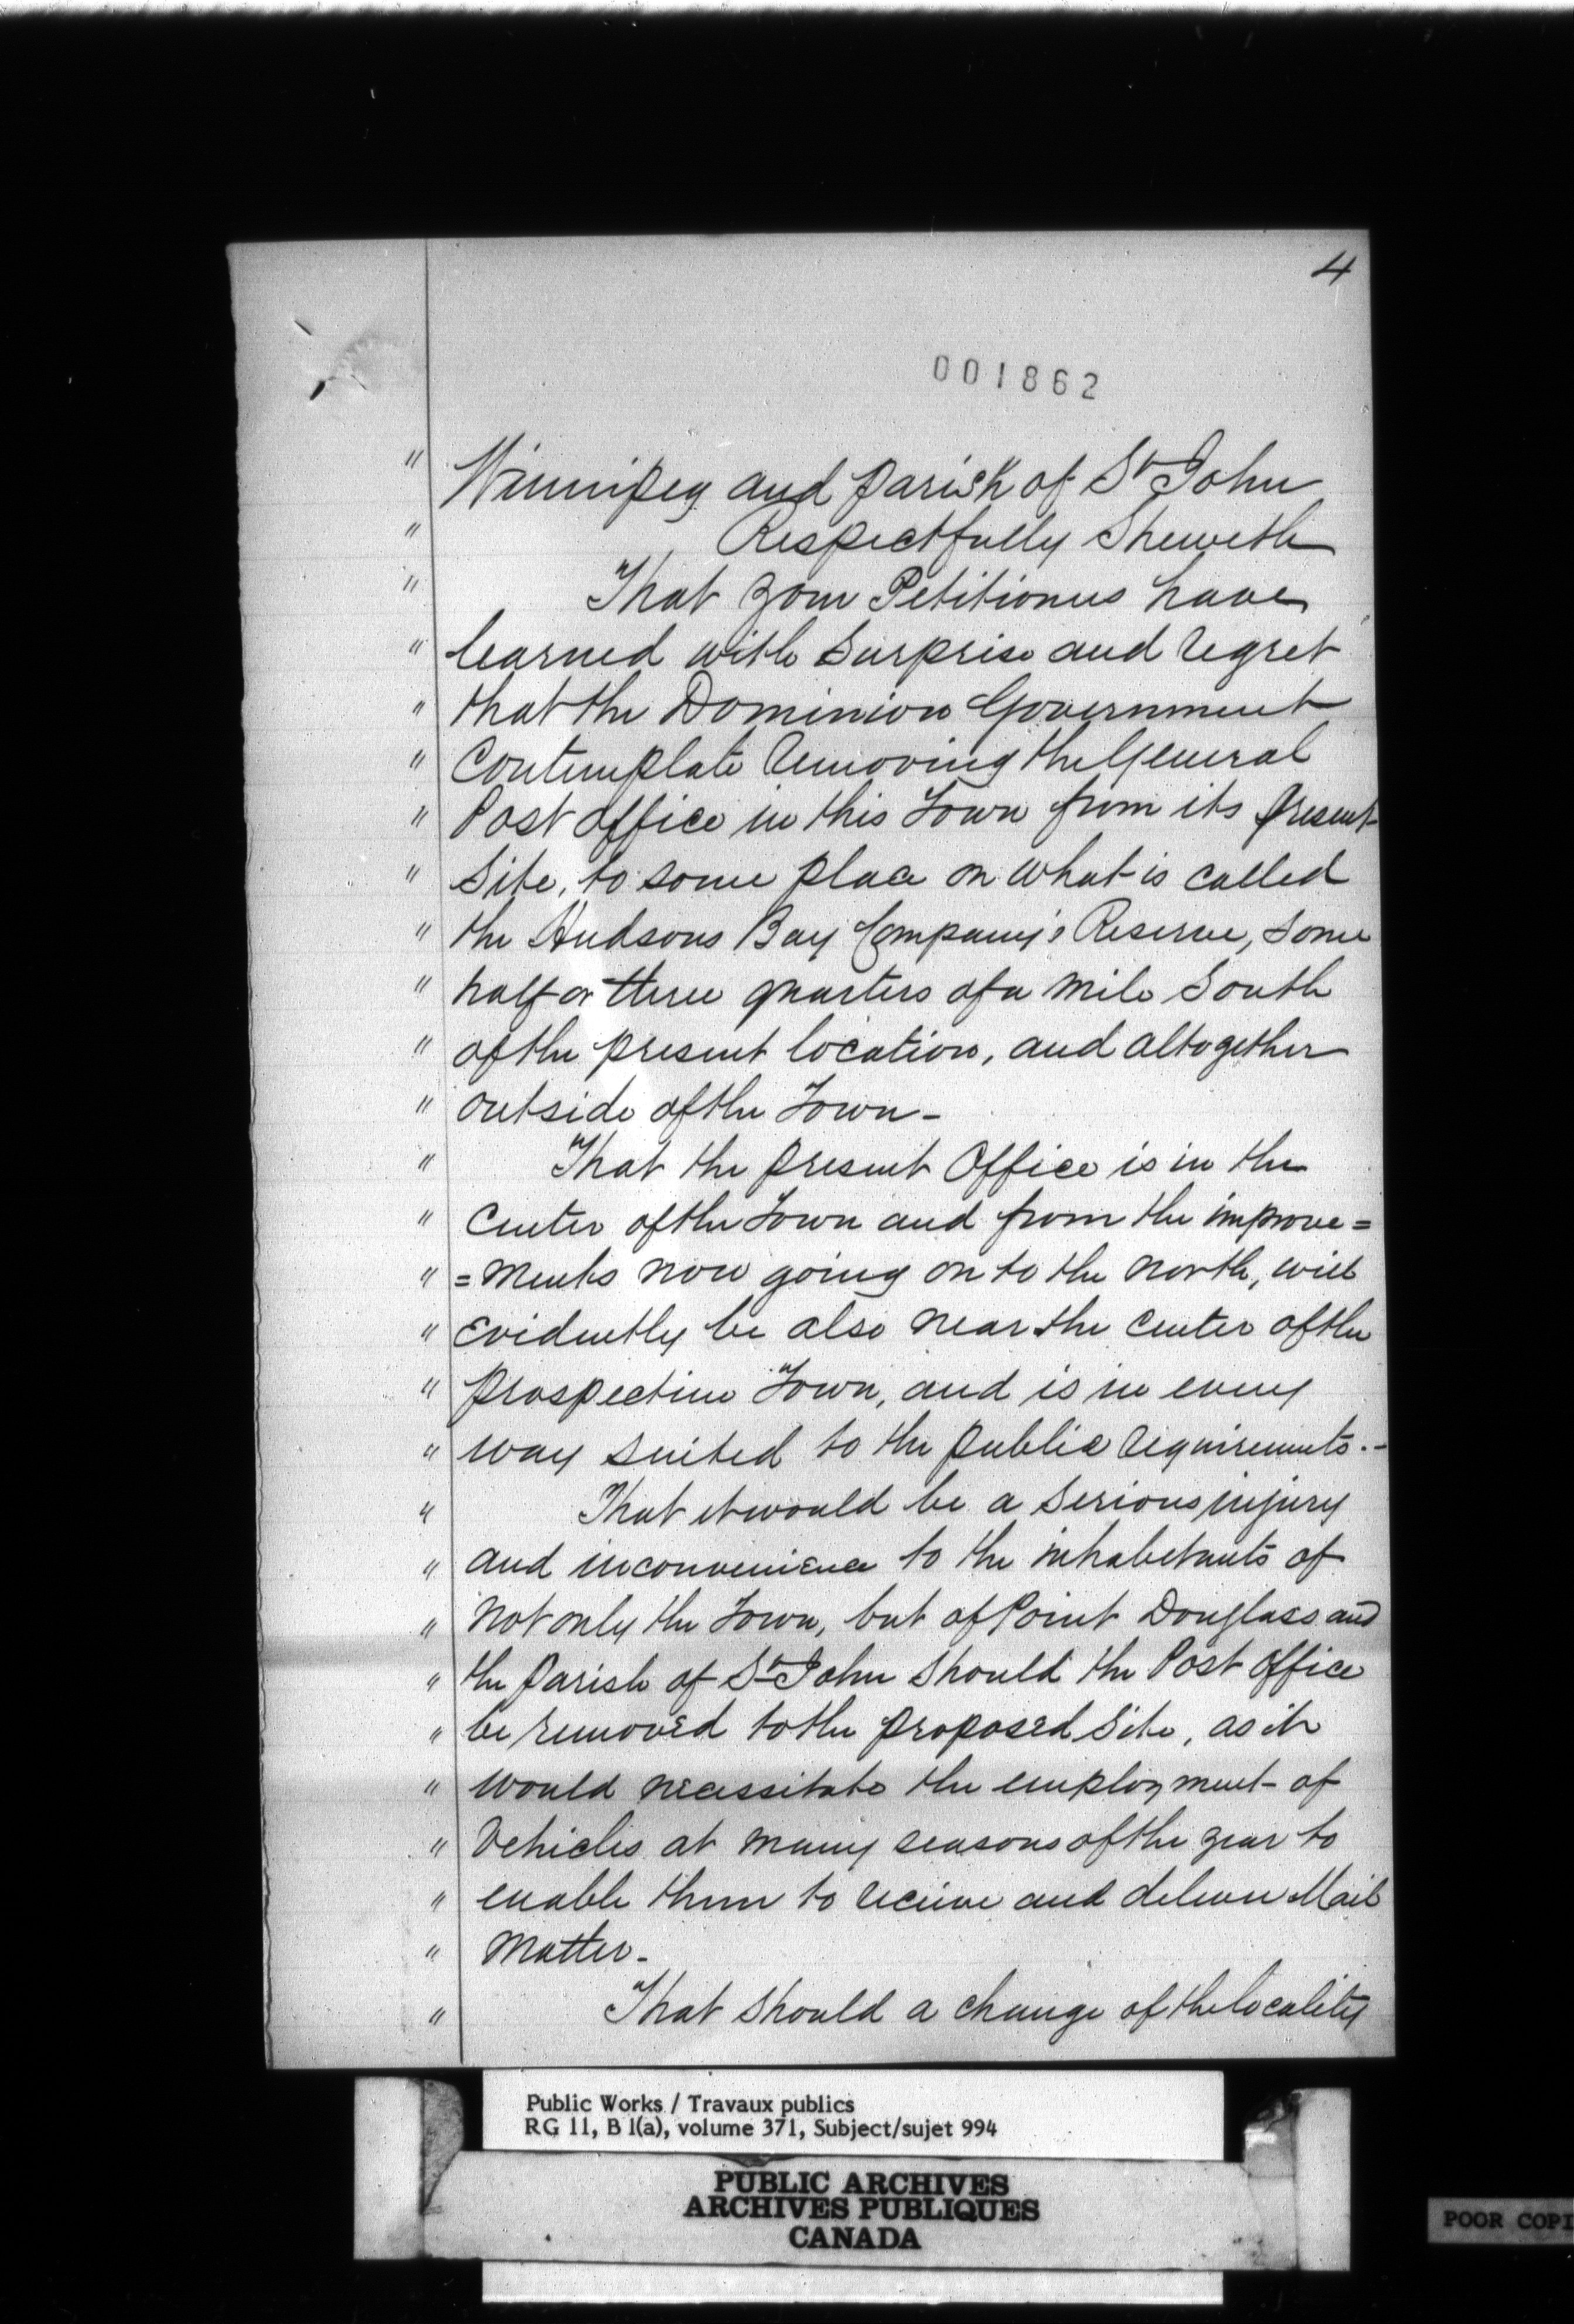 4
001862
" Winnipeg and parish of St John
" Respectfully Sheweth
" That your Petitioners have
" learned with surprise and regret
" that the Dominion Government
" Contemplate removing the General
" Post office in this Town from its present
" Site, to some place on what is called
" the Hudsons Bay Company's Reserve, some
" half or three quarters of a mile South
" of the present location, and altogether
" outside of the Town -
" That the present Office is in the
" Center of the Town and from the improve=
" =ments now going on to the north, will
" evidently be also near the center of the
" prospective Town, and is in every
" way suited to the public requirements. -
" That it would be a serious injury
" and inconvenience to the inhabetants of
" not only the Town, but of Point Douglass and
" the Parish of St John should the Post office
" be removed to the proposed Site, as it
" would necessitate the employment of
" Vehicles at many seasons of the year to
" enable them to receive and deliver Mail
" Matter -
" That should a change of the locality
Public Works / Travaux publics
RG 11, B 1(a), volume 371, Subject/sujet 994
PUBLIC ARCHIVES
ARCHIVES PUBLIQUES
CANADA
POOR COPI